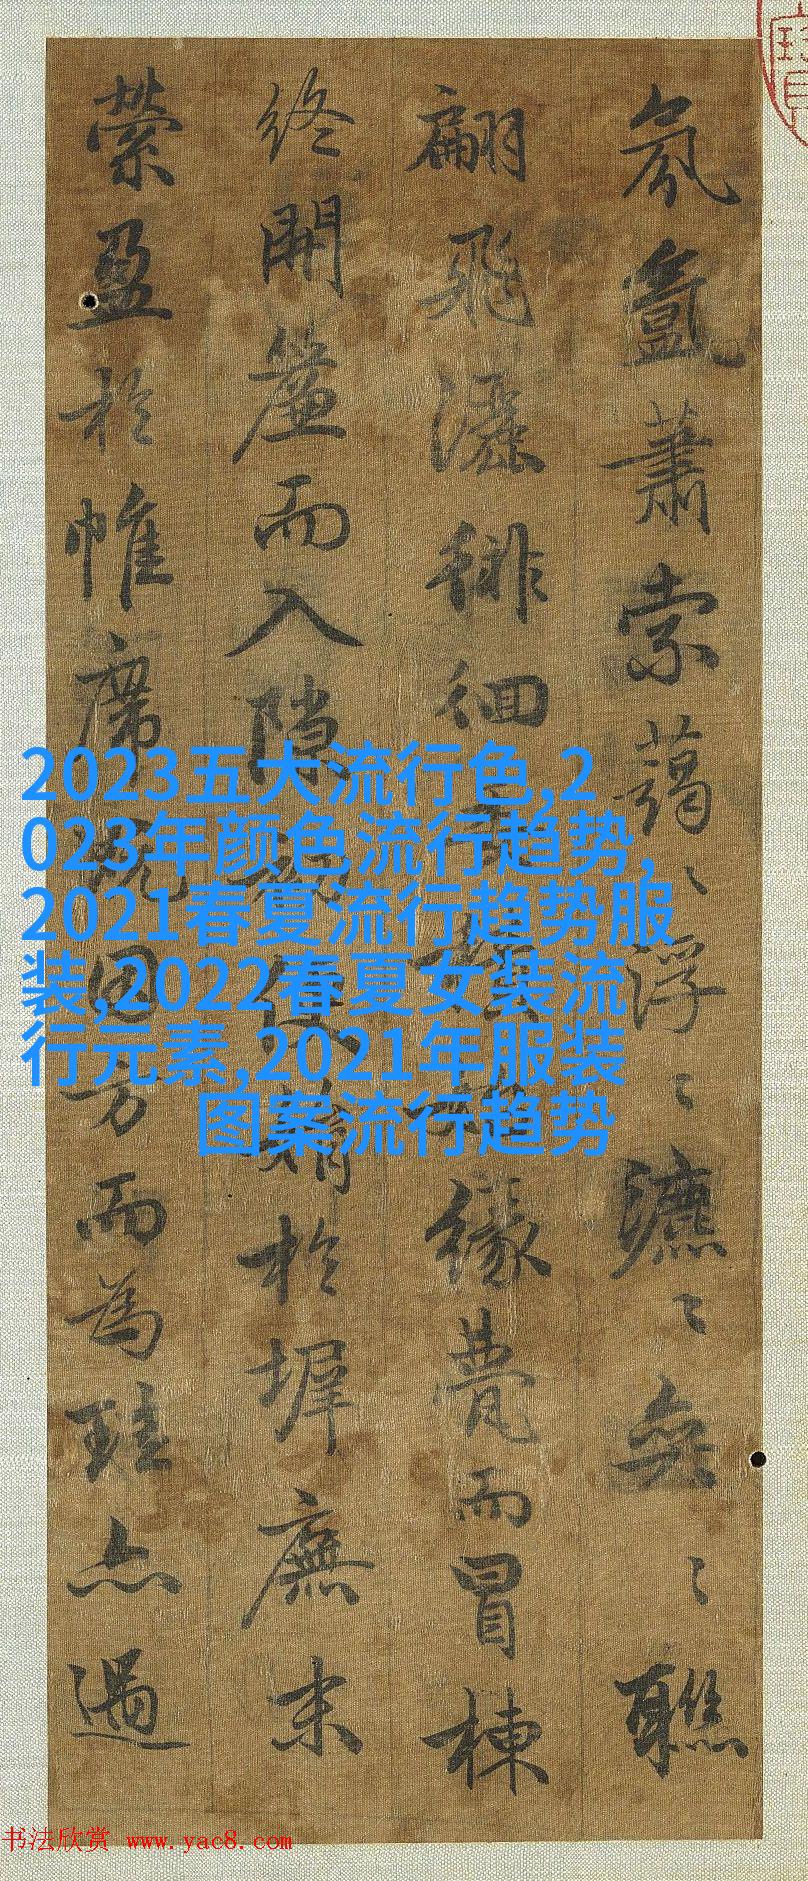 氛氳蕭索藹〻浮〻瀌〻奕〻聯
翩飛灑徘徊緣甍而冒棟
終開簾而入隙便娟於墀廡末
縈盈於帷席既因方而為珪亦過
2023五大流行色,2
023年颜色流行趋势,
2021春夏流行趋势服
装,2022春夏女装流
行元素,2021年服装
图案流行趋势
书法欣赏 www.yac8.com